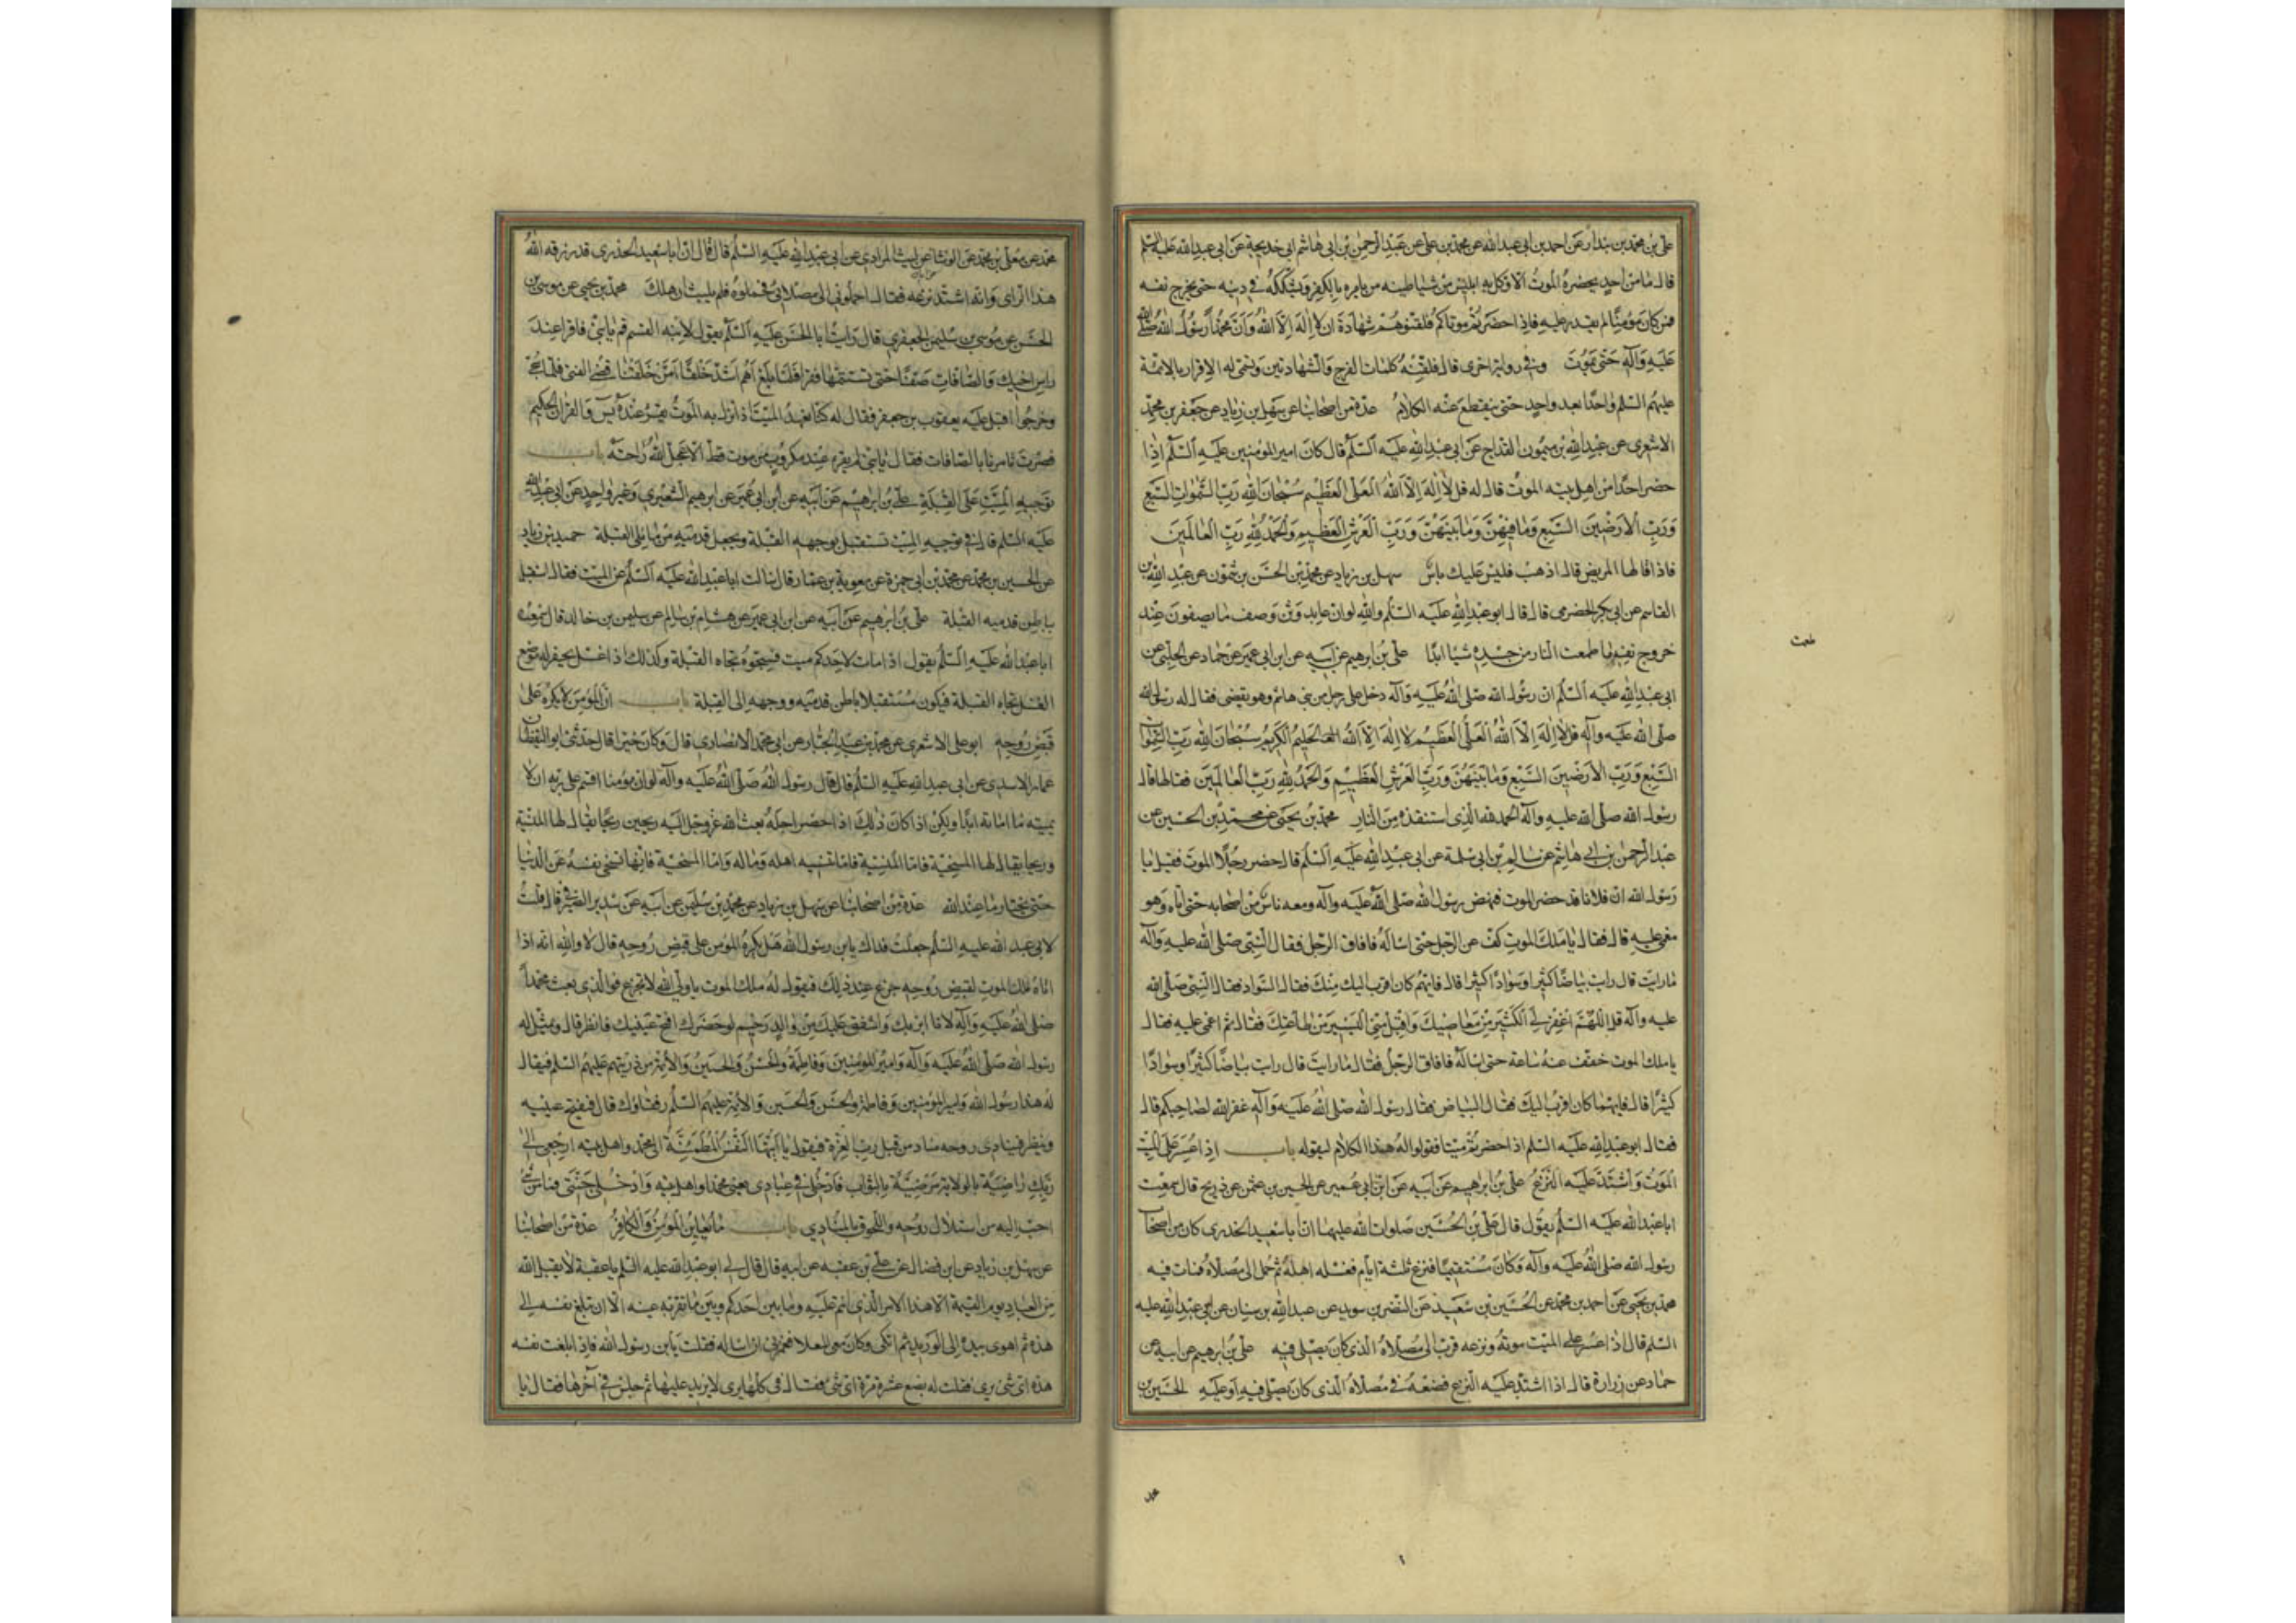 علی بن محمد بن بندار عن احمد بن ابی عبدالله عن محمد بن علی عن عبد الرحمن بن ابی هاشم عن ابی خدیجة عن ابی عبدالله علیه السلم
قال ما من احد یحضره الموت الا وکل به ابلیس من شیاطینه من یامره بالکفر ویشککه فی دینه حتی یخرج نفسه
فمن کان مؤمنا لم یقدر علیه فاذا حضرتم موتاکم فلقنوهم شهادة ان لا اله الا الله وان محمدا رسول الله صلی الله
علیه وآله حتی یموت وفی روایة اخری قال فلقنه کلمات الفرج والشهادتین وتسمی له الاقرار بالائمة
علیهم السلم واحدا بعد واحد حتی ینقطع عنه الکلام عدة من اصحابنا عن سهل بن زیاد عن جعفر بن محمد
الاشعری عن عبدالله بن میمون القداح عن ابی عبدالله علیه السلم قال کان امیر المؤمنین علیه السلم اذا
حضر احدا من اهل بیته الموت قال له قل لا اله الا الله العلی العظیم سبحان الله رب السموات السبع
ورب الارضین السبع وما فیهن وما بینهن ورب العرش العظیم والحمد لله رب العالمین
فاذا قالها المریض قال اذهب فلیس علیک باس سهل بن زیاد عن محمد بن الحسن بن شمون عن عبد الله بن
القاسم عن ابی بکر الحضرمی قال قال ابو عبدالله علیه السلم والله لو ان عابد وثن وصف ما یصفون عند
خروج نفسه ما طمعت النار من جسده شیا ابدا علی بن ابرهیم عن ابیه عن ابن ابی عمیر عن حماد عن الحلبی عن
ابی عبدالله علیه السلم ان رسول الله صلی الله علیه وآله دخل علی رجل من بنی هاشم وهو یقضی فقال له رسول الله
صلی الله علیه وآله قل لا اله الا الله العلی العظیم لا اله الا الله الحلیم الکریم سبحان الله رب السموات
السبع ورب الارضین السبع وما بینهن ورب العرش العظیم والحمد لله رب العالمین فقالها فقال
رسول الله صلی الله علیه وآله الحمد لله الذی استنقذه من النار محمد بن یحیی عن محمد بن الحسین عن
عبد الرحمن بن ابی هاشم عن سالم بن ابی سلمة عن ابی عبدالله علیه السلم قال حضر رجلا الموت فقیل یا
رسول الله ان فلانا قد حضر الموت فنهض رسول الله صلی الله علیه وآله ومعه ناس من اصحابه حتی اتاه وهو
مغمی علیه قال فقال یا ملک الموت کف عن الرجل حتی اساله فافاق الرجل فقال النبی صلی الله علیه وآله
ما رایت قال رایت بیاضا کثیرا وسوادا کثیرا قال فایهم کان اقرب الیک منک فقال السواد فقال النبی صلی الله
علیه وآله قل اللهم اغفر لی الکثیر من معاصیک واقبل منی الیسیر من طاعتک فقال ثم اغمی علیه فقال
یا ملک الموت خفف عنه ساعة حتی اساله فافاق الرجل فقال ما رایت قال رایت بیاضا کثیرا وسوادا
کثیرا قال فایهما کان اقرب الیک فقال البیاض فقال رسول الله صلی الله علیه وآله غفر الله لصاحبکم قال
فقال ابو عبدالله علیه السلم اذا حضرتم میتا فقولوا له هذا الکلام لیقوله باب اذا عسر علی المیت
الموت واشتد علیه النزع علی بن ابرهیم عن ابیه عن ابن ابی عمیر عن الحسین بن عثمن عن ذریح قال سمعت
ابا عبدالله علیه السلم یقول قال علی بن الحسین صلوات الله علیهما ان ابا سعید الخدری کان من اصحاب
رسول الله صلی الله علیه وآله وکان مستقیما فنزع ثلثة ایام فغسله اهله ثم حمل الی مصلاه فمات فیه
محمد بن یحیی عن احمد بن محمد عن الحسین بن سعید عن النضر بن سوید عن عبدالله بن سنان عن ابی عبدالله علیه
السلم قال اذا عسر علی المیت موته ونزعه قرب الی مصلاه الذی کان یصلی فیه علی بن ابرهیم عن ابیه عن
حماد عن زرارة قال اذا اشتد علیه النزع فضعه فی مصلاه الذی کان یصلی فیه او علیه الحسین بن
محمد عن معلی بن محمد عن الوشا عن لیث المرادی عن ابی عبدالله علیه السلم قال قال ان ابا سعید الخدری قد رزقه الله
هذا الرای وانه اشتد نزعه فقال احملونی الی مصلای فحملوه فلم یلبث ان هلک محمد بن یحیی عن موسی بن
الحسن عن موسی بن سلیمن الجعفری قال رایت ابا الحسن علیه السلم یقول لابنه القسم قم یا بنی فاقرا عند
راس اخیک والصافات صفا حتی تستتمها فقرا فلما بلغ اهم اشد خلقا امن خلقنا قضی الفتی فلما سجی
وخرجوا اقبل علیه یعقوب بن جعفر فقال له کنا نعهد المیت اذا نزل به الموت یقرء عنده یس والقران الحکیم
فصرت تامرنا بالصافات فقال یا بنی لم یقرء عند مکروب من موت قط الا عجل الله راحته باب
توجیه المیت علی القبلة علی بن ابرهیم عن ابیه عن ابن ابی عمیر عن ابرهیم الشعیری وغیر واحد عن ابی عبدالله
علیه السلم قال فی توجیه المیت تستقبل بوجهه القبلة وتجعل قدمیه مما یلی القبلة حمید بن زیاد
عن الحسین بن محمد عن محمد بن ابی حمزة عن معویة بن عمار قال سالت ابا عبدالله علیه السلم عن المیت فقال استقبل
بباطن قدمیه القبلة علی بن ابرهیم عن ابیه عن ابن ابی عمیر عن هشام بن سالم عن سلیمن بن خالد قال سمعت
ابا عبدالله علیه السلم یقول اذا مات لاحدکم میت فسجوه تجاه القبلة وکذلک اذا غسل یحفر له موضع
الغسل تجاه القبلة فیکون مستقبلا بباطن قدمیه ووجهه الی القبلة باب ان المؤمن لا یکره علی
قبض روحه ابو علی الاشعری عن محمد بن عبد الجبار عن ابی محمد الانصاری قال وکان خیرا قال حدثنی ابو الیقظان
عمار الاسدی عن ابی عبدالله علیه السلم قال قال رسول الله صلی الله علیه وآله لو ان مؤمنا اقسم علی ربه ان لا
یمیته ما اماته ابدا ولکن اذا کان ذلک اذا حضر اجله بعث الله عز وجل الیه ریحین ریحا یقال لها المنسیة
وریحا یقال لها المسخیة فاما المنسیة فانها تنسیه اهله وماله واما المسخیة فانها تسخی نفسه عن الدنیا
حتی یختار ما عند الله عدة من اصحابنا عن سهل بن زیاد عن محمد بن سلیمن عن ابیه عن سدیر الصیرفی قال قلت
لابی عبد الله علیه السلم جعلت فداک یا بن رسول الله هل یکره المؤمن علی قبض روحه قال لا والله انه اذا
اتاه ملک الموت لقبض روحه جزع عند ذلک فیقول له ملک الموت یا ولی الله لا تجزع فوالذی بعث محمدا
صلی الله علیه وآله لانا ابر بک واشفق علیک من والد رحیم لو حضرک افتح عینیک فانظر قال ویمثل له
رسول الله صلی الله علیه وآله وامیر المؤمنین وفاطمة والحسن والحسین والائمة من ذریتهم علیهم السلم فیقال
له هذا رسول الله وامیر المؤمنین وفاطمة والحسن والحسین والائمة علیهم السلم رفقاؤک قال فیفتح عینیه
وینظر فینادی روحه مناد من قبل رب العزة فیقول یا ایتها النفس المطمئنة الی محمد واهل بیته ارجعی الی
ربک راضیة بالولایة مرضیة بالثواب فادخلی فی عبادی یعنی محمدا واهل بیته وادخلی جنتی فما من شی
احب الیه من استلال روحه واللحوق بالمنادی باب ما یعاین المؤمن والکافر عدة من اصحابنا
عن سهل بن زیاد عن ابن فضال عن علی بن عقبة عن ابیه قال قال لی ابو عبدالله علیه السلم یا عقبة لا یقبل الله
من العباد یوم القیمة الا هذا الامر الذی انتم علیه وما بین احدکم وبین ما تقر به عینه الا ان تبلغ نفسه الی
هذه ثم اهوی بیده الی الورید ثم اتکی وکان معی المعلا فغمزنی ان اساله فقلت یا بن رسول الله فاذا بلغت نفسه
هذه ای شی یری فقلت له بضع عشرة مرة ای شی فقال فی کلها یری لا یزید علیها ثم جلس فی آخرها فقال یا